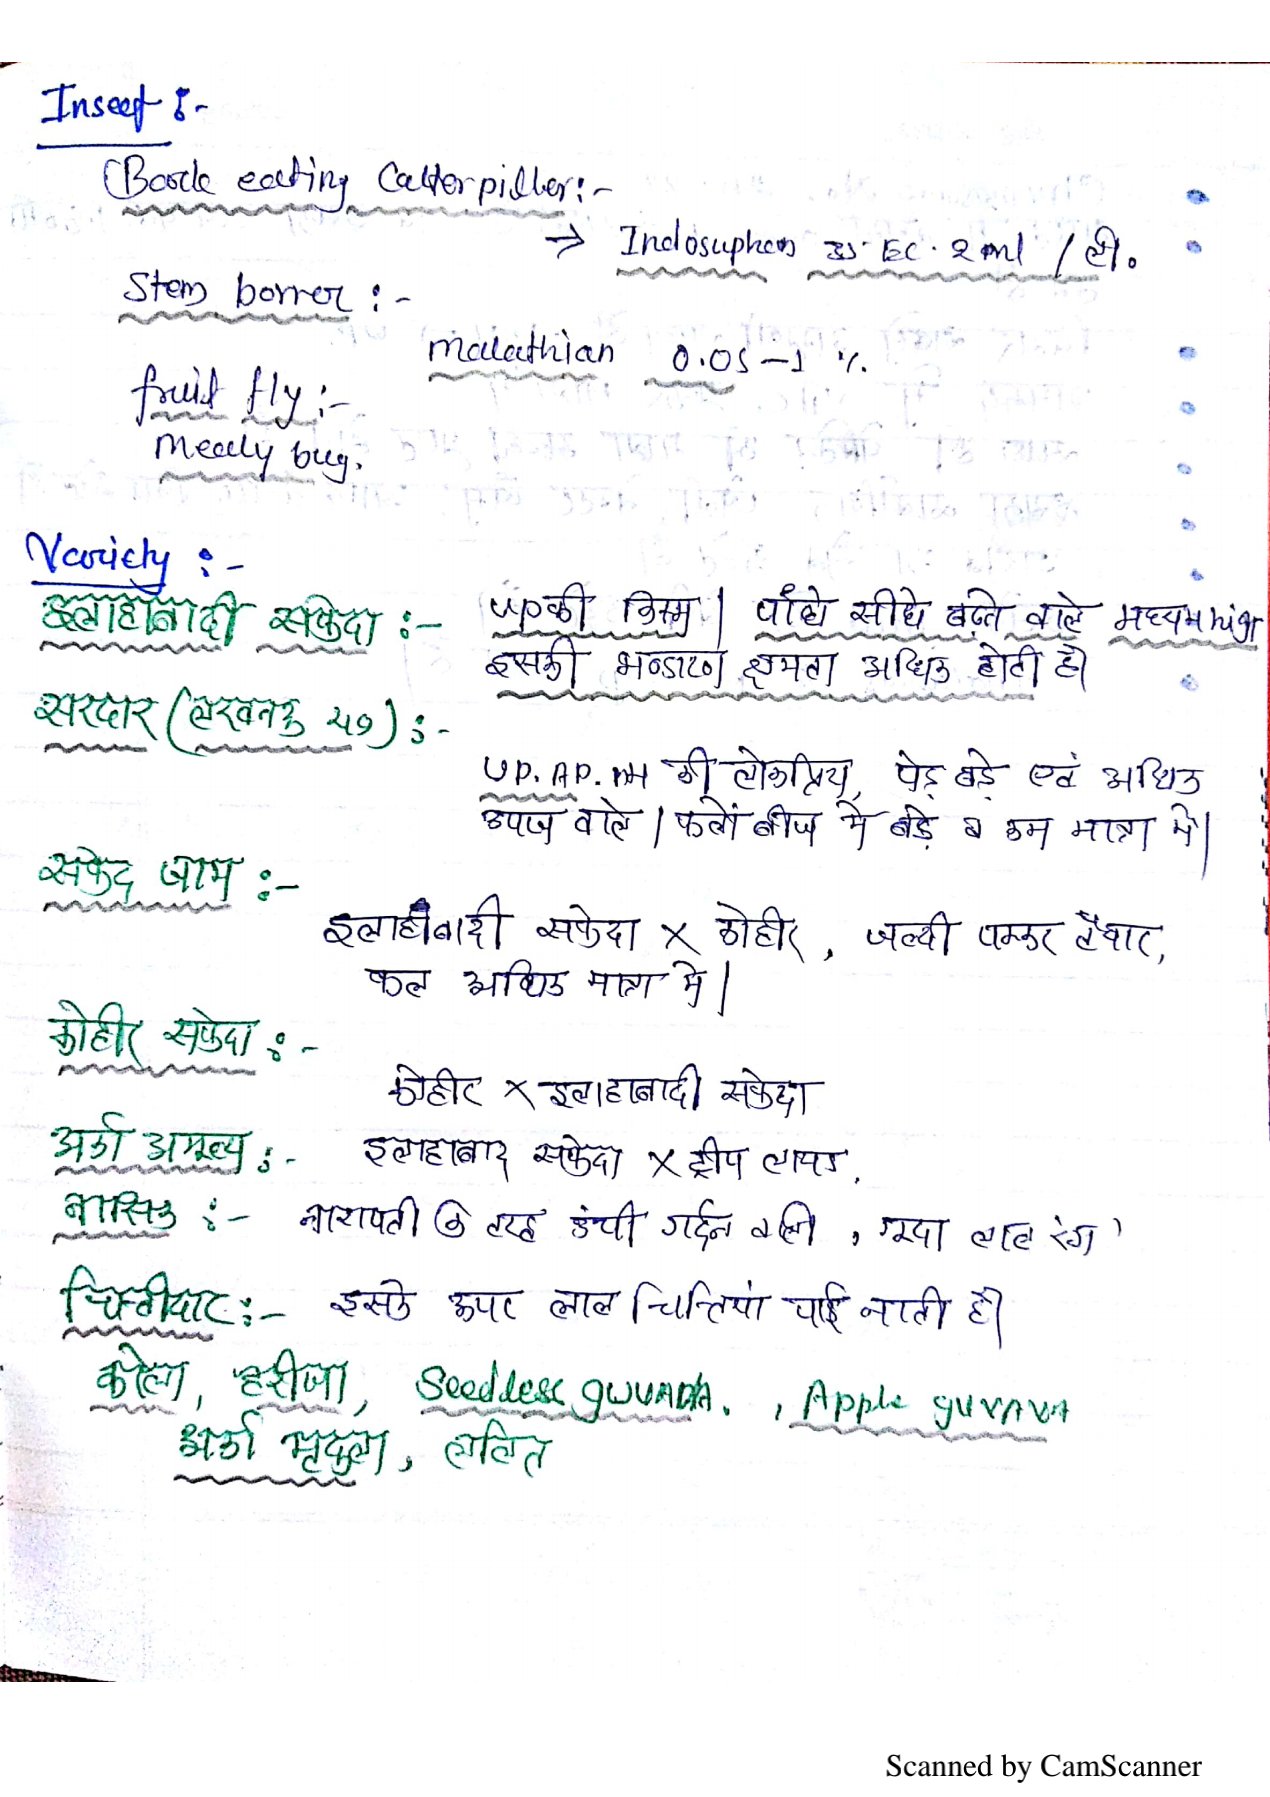 Insect :-
Bark eating Catterpiller:-
→ Indosuphan 35 EC. 2ml / ली.
Stem borrer :-
malathian 0.05-1 %.
fruit fly :-
Mealy bug.
Variety :-
इलाहाबादी सफेदा :- UP की किस्म | पौधे सीधे बढ़ने वाले मध्यम high
इसकी भण्डारण क्षमता अधिक होती है।
सरदार (लखनऊ 49) :-
UP. AP. MH की लोकप्रिय, पेड़ बड़े एवं अधिक
उपज वाले | फलों बीज में बड़े व कम मात्रा में |
सफेद जाम :-
इलाहाबादी सफेदा X कोहीर, जल्दी पककर तैयार,
फल अधिक मात्रा में |
कोहीर सफेदा :-
कोहीर X इलाहाबादी सफेदा
अर्का अमूल्य :- इलाहाबाद सफेदा X ट्रीप लायड.
नासिक :- नाशपती के तरह ऊंची गर्दन वाली, गूदा लाल रंग
चित्तीदार :- इसके ऊपर लाल चित्तियां पाई जाती है।
कोला, हरीजा, Seeddless guvava. , Apple guvava
अर्का मृदुला, ललित
Scanned by CamScanner